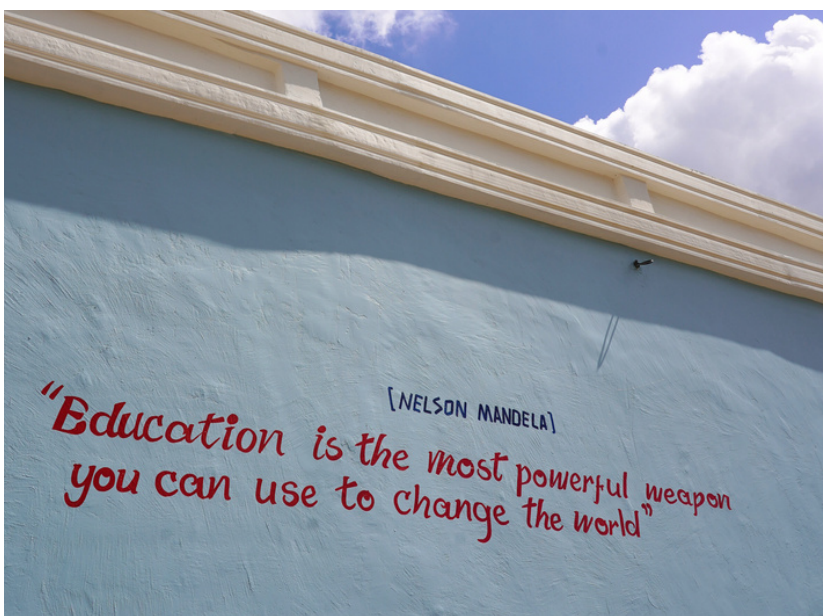 [NELSON MANDELA]
“Education is the most powerful weapon
you can use to change the world”